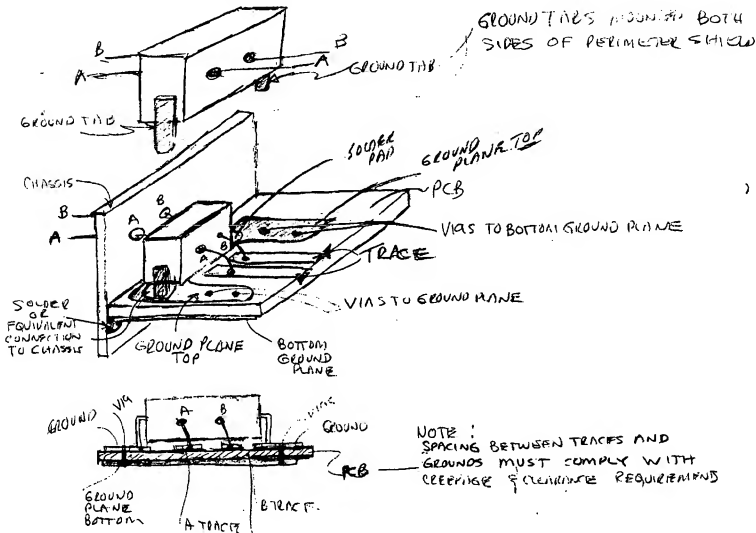 GROUND TABS MOUNTED BOTH
SIDES OF PERIMETER SHIELD
B
B
A
A
GROUND TAB
GROUND TAB
SOLDER
PAD
GROUND
PLANE TOP
CHASSIS
PCB
B
A
A
B
A
B
VIAS TO BOTTOM GROUND PLANE
TRACE
SOLDER
OR
EQUIVALENT
CONNECTION
TO CHASSIS
VIAS TO GROUND PLANE
GROUND PLANE
TOP
BOTTOM
GROUND
PLANE
GROUND
VIA
A
B
VIAS
GROUND
NOTE :
SPACING BETWEEN TRACES AND
GROUNDS MUST COMPLY WITH
CREEPAGE & CLEARANCE REQUIREMENTS
PCB
GROUND
PLANE
BOTTOM
A TRACE
B TRACE